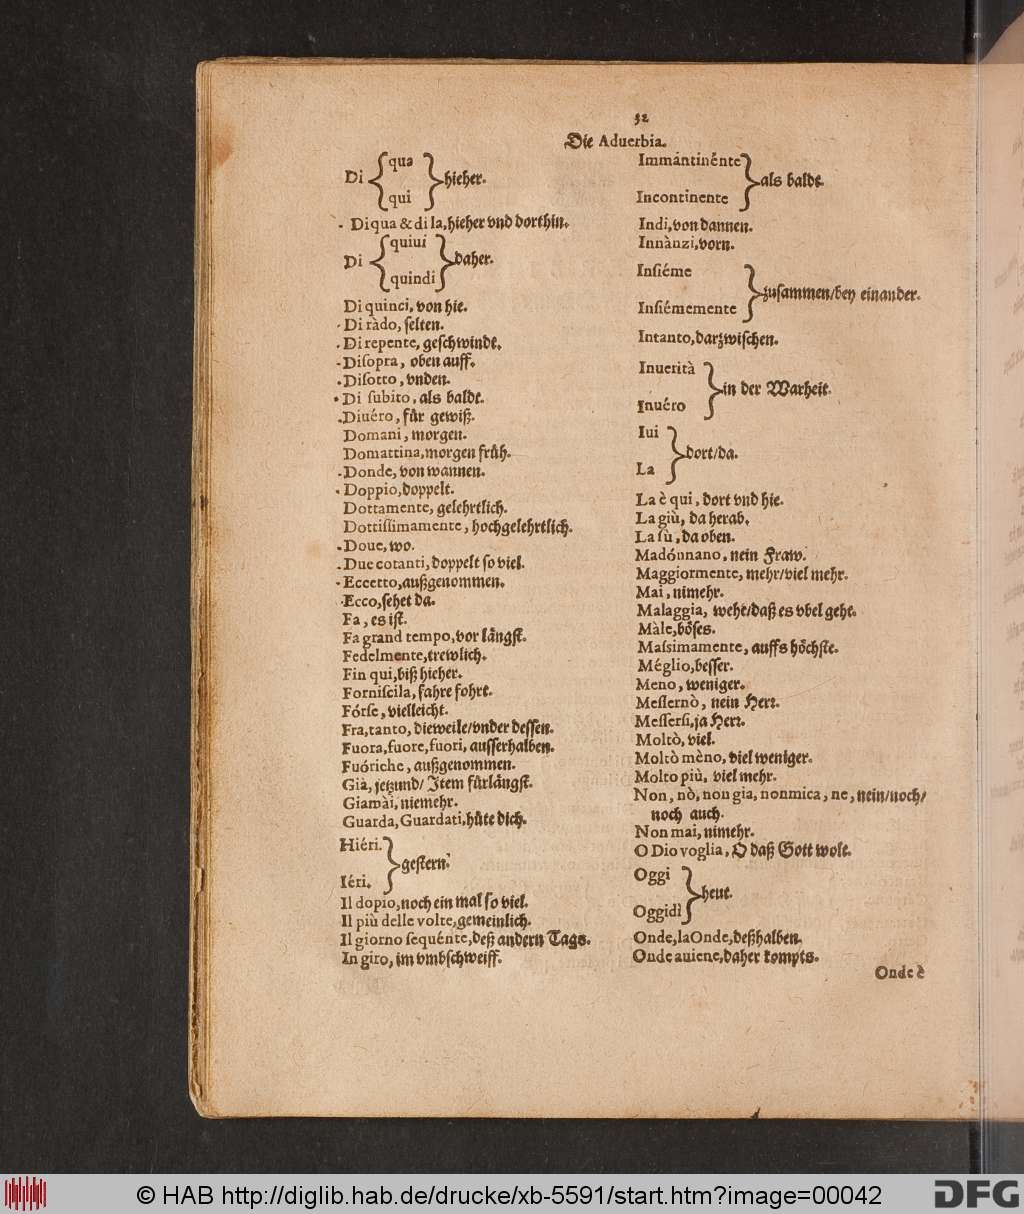 32
Die Aduerbia.
Di { qua
qui } hieher.
Di qua & di la, hieher vnd dorthin.
Di { quiui
quindi } daher.
Di quinci, von hie.
Di ràdo, ſelten.
Di repente, geſchwindt.
Diſopra, oben auff.
Diſotto, vnden.
Di ſubito, als baldt.
Diuéro, für gewiß.
Domani, morgen.
Domattina, morgen früh.
Donde, von wannen.
Doppio, doppelt.
Dottamente, gelehrtlich.
Dottiſſimamente, hochgelehrtlich.
Doue, wo.
Due cotanti, doppelt ſo viel.
Eccetto, außgenommen.
Ecco, ſehet da.
Fa, es iſt.
Fa grand tempo, vor längſt.
Fedelmente, trewlich.
Fin qui, biß hieher.
Forniſcila, fahre fohrt.
Fórſe, vielleicht.
Fra, tanto, dieweile/vnder deſſen.
Fuora, fuore, fuori, auſſerhalben.
Fuóriche, außgenommen.
Già, jetzund/ Item fürlängſt.
Giamài, niemehr.
Guarda, Guardati, hüte dich.
Hiéri.
Iéri. } geſtern.
Il dopio, noch ein mal ſo viel.
Il più delle volte, gemeinlich.
Il giorno ſequénte, deß andern Tags.
In giro, im vmbſchweiff.
Immantinénte
Incontinente } als baldt.
Indi, von dannen.
Innànzi, vorn.
Inſiéme
Inſiémemente } zuſammen/bey einander.
Intanto, darzwiſchen.
Inuerità
Inuéro } in der Warheit.
Iui
La } dort/da.
La è qui, dort vnd hie.
La giù, da herab.
La ſù, da oben.
Madónnano, nein Fraw.
Maggiormente, mehr/viel mehr.
Mai, nimehr.
Malaggia, wehe/daß es vbel gehe.
Màle, böſes.
Maſsimamente, auffs höchſte.
Méglio, beſſer.
Meno, weniger.
Meſſernò, nein Herr.
Meſſerſi, ja Herr.
Moltò, viel.
Moltò mèno, viel weniger.
Molto più, viel mehr.
Non, nò, non gia, nonmica, ne, nein/noch/
noch auch.
Non mai, nimehr.
O Dio voglia, O daß Gott wolt.
Oggi
Oggidì } heut.
Onde, laOnde, deßhalben.
Onde auiene, daher kompts.
Onde è
© HAB http://diglib.hab.de/drucke/xb-5591/start.htm?image=00042
DFG